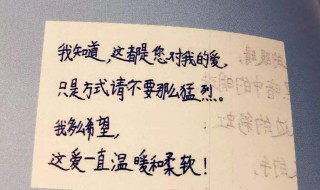 我知道，这都是您对我的爱，
只是方式请不要那么猛烈。
我多么希望，
这爱一直温暖和柔软！